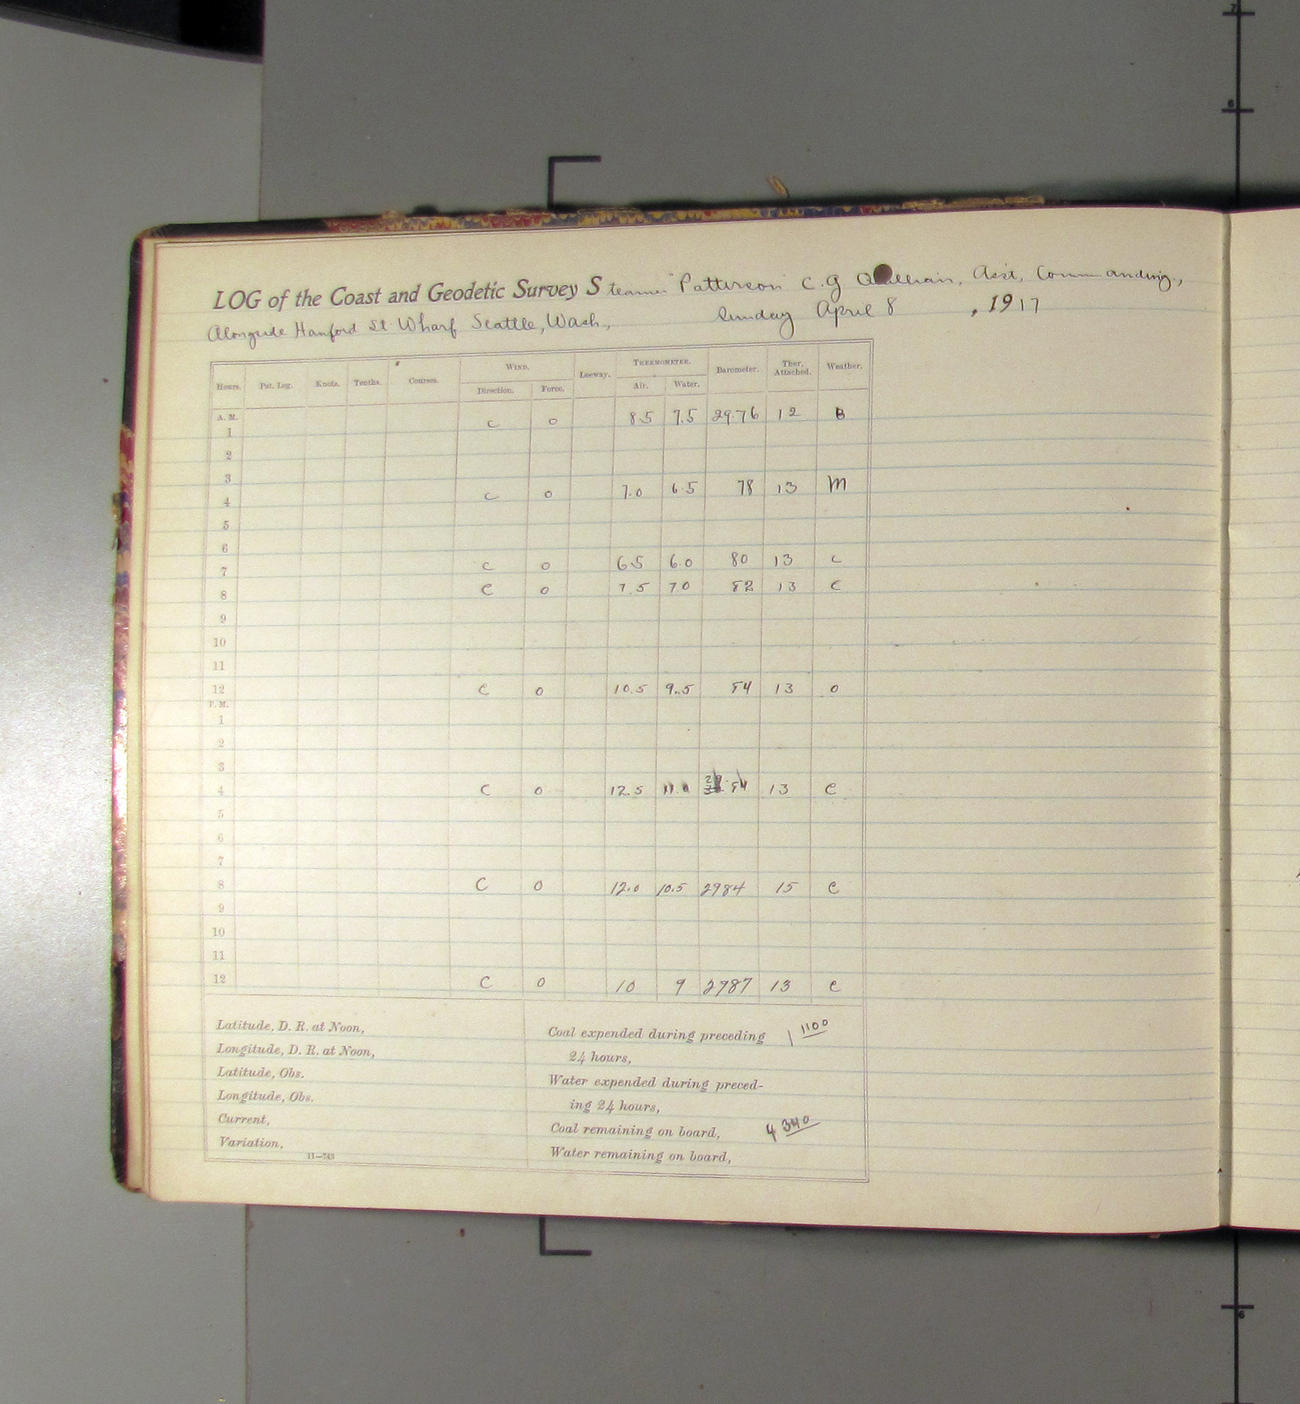 LOG of the Coast and Geodetic Survey Steamer "Patterson" C. G. Quillian, Asst, Commanding,
Alongside Hanford St Wharf Seattle, Wash., Sunday April 8, 1917
Hours. Pat. Log. Knots. Tenths. Courses. WIND. Leeway. THERMOMETER. Barometer. Ther. Attached. Weather.
Direction. Force. Air. Water.
A. M.
1 C 0 8.5 7.5 29.76 12 B
2
3
4 C 0 7.0 6.5 78 13 M
5
6
7 C 0 6.5 6.0 80 13 C
8 C 0 7.5 7.0 82 13 C
9
10
11
12 C 0 10.5 9.5 84 13 O
P. M.
1
2
3
4 C 0 12.5 11.0 84 13 C
5
6
7
8 C 0 12.0 10.5 2984 15 C
9
10
11
12 C 0 10 9 2987 13 C
Latitude, D. R. at Noon,
Longitude, D. R. at Noon,
Latitude, Obs.
Longitude, Obs.
Current,
Variation,
11—743
Coal expended during preceding 1 1100
24 hours,
Water expended during preced-
ing 24 hours,
Coal remaining on board, 4 340
Water remaining on board,
7
6
6